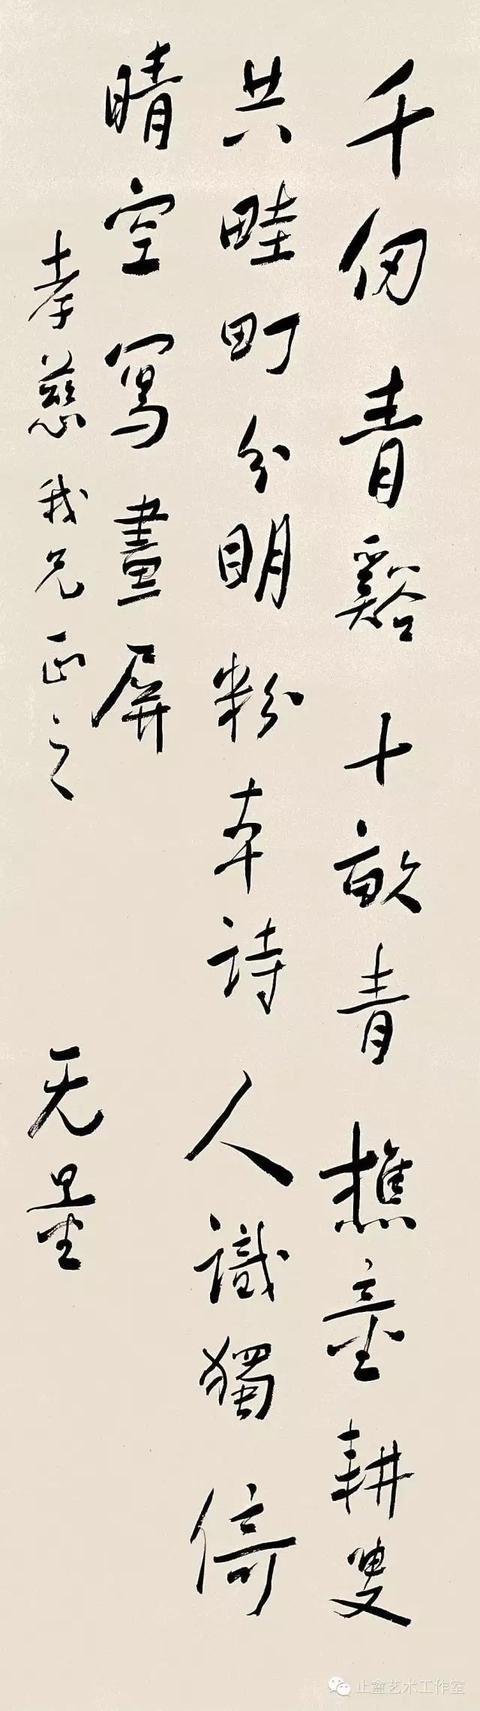 千仞青谿十畝青樵童耕叟
共畦町分明粉本詩人識獨倚
晴空寫畫屏
孝慈我兄正之
无量
止盦艺术工作室